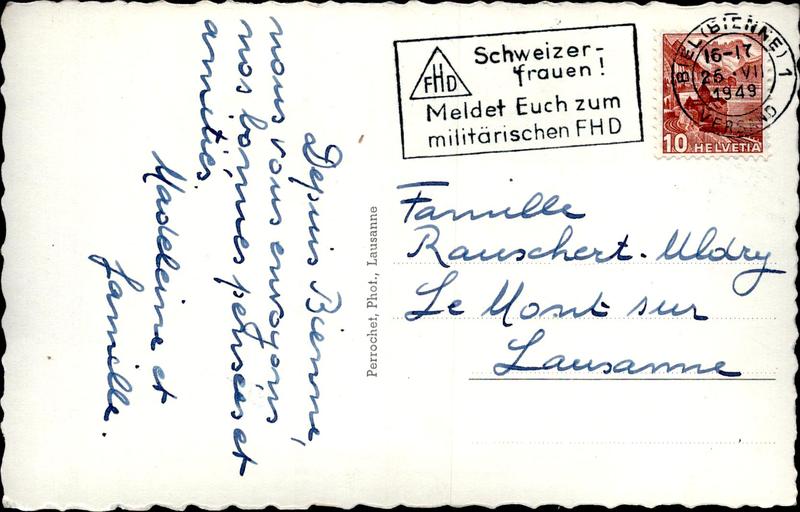 Depuis Bienne,
nous vous envoyons
nos bonnes pensées et
amitiés
Madeleine et
famille.
Perrochet, Phot., Lausanne
FHD
Schweizer-
frauen!
Meldet Euch zum
militärischen FHD
BIEL (BIENNE) 1
16-17
25. VII
1949
VERSAND
10 HELVETIA
Famille
Rauschert-Uldry
Le Mont sur
Lausanne